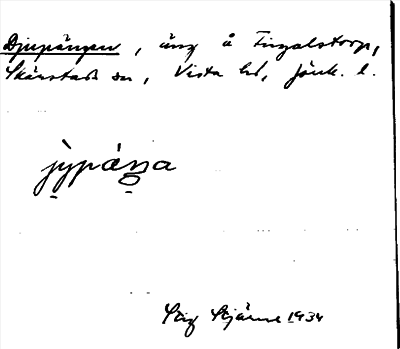 Djupängen, äng å Fingalstorp,
Skärstads sn, Vista hd, Jönk. l.
jy̠pàŋa
Stig Stjärne 1934